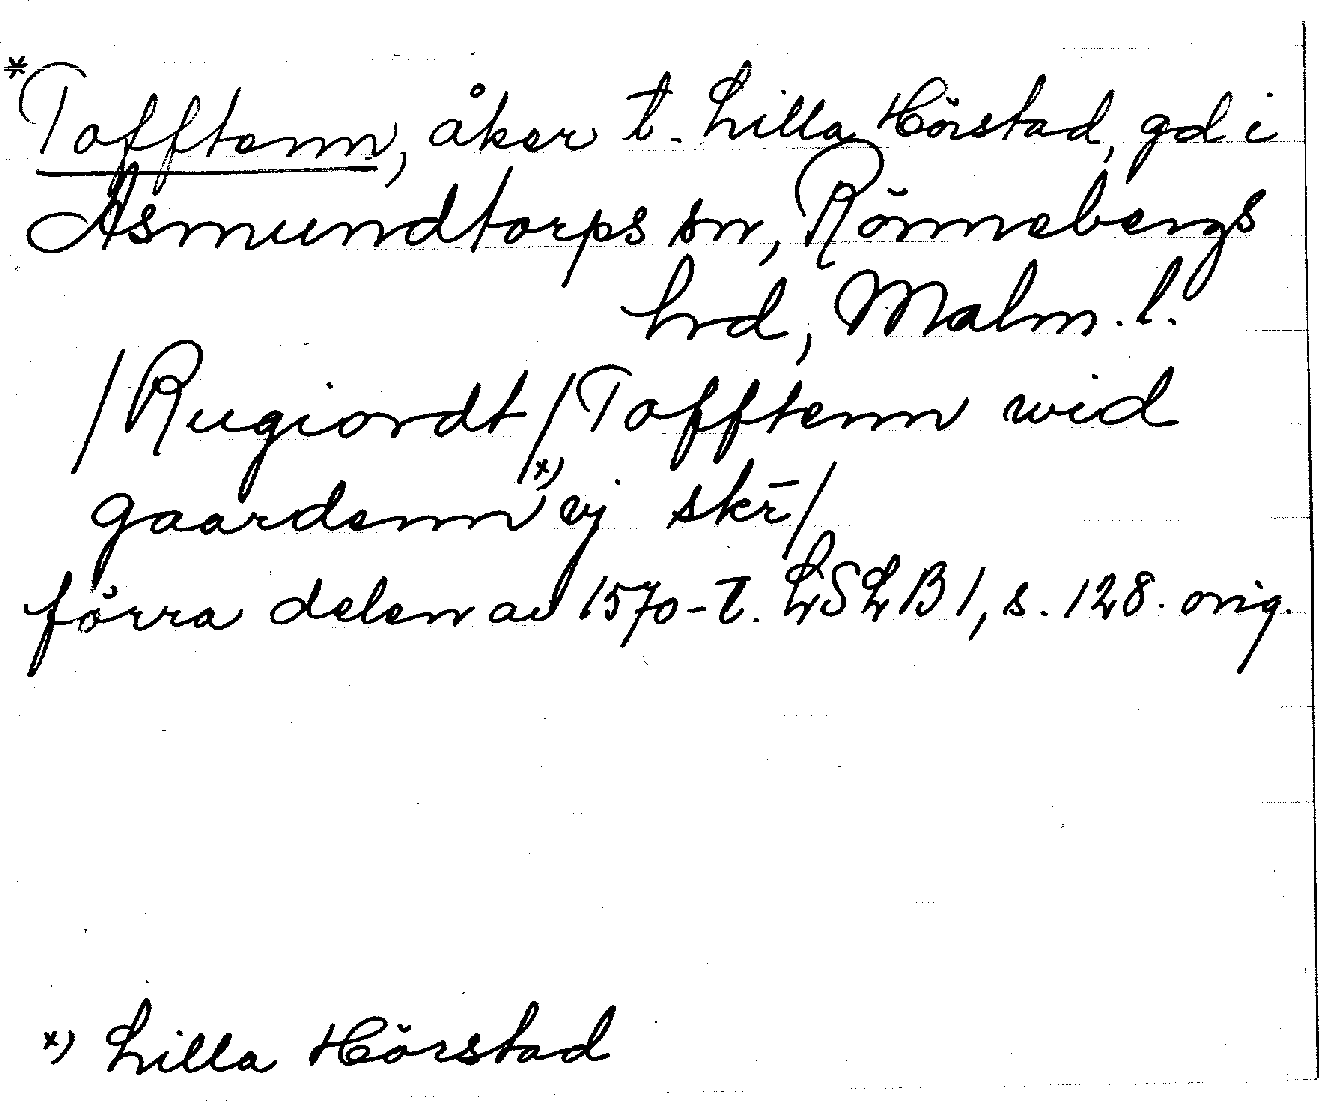 *Tofftenn, åker t. Lilla Hörstad, gd i
Asmundtorps sn, Rönnebergs
hrd, Malm. l.
/Rugiordt/Tofftenn wid
gaardenn x) vj skr̄/
förra delen av 1570-t. LSLB1, s. 128. orig.
x) Lilla Hörstad